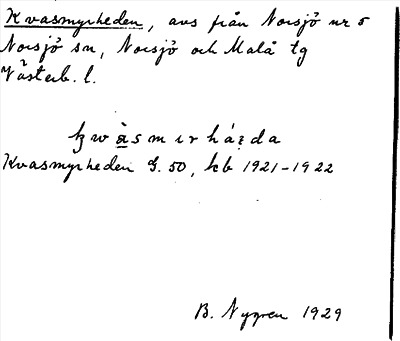 Kvasmyrheden, avs från Norsjö nr 5
Norsjö sn, Norsjö och Malå tg
Västerb. l.
kwàsmırháıda
Kvasmyrheden G. 50, kb 1921-1922
B. Nygren 1929